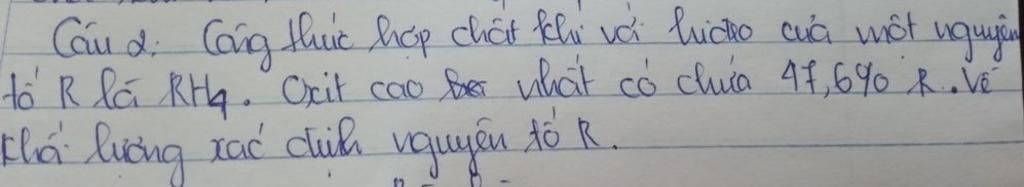 Câu 2: Công thức hợp chất khí với hiđro của một nguyên
tố R là RH4. Oxit cao nhất có chứa 47,6% R. Về
khối lượng xác định nguyên tố R.